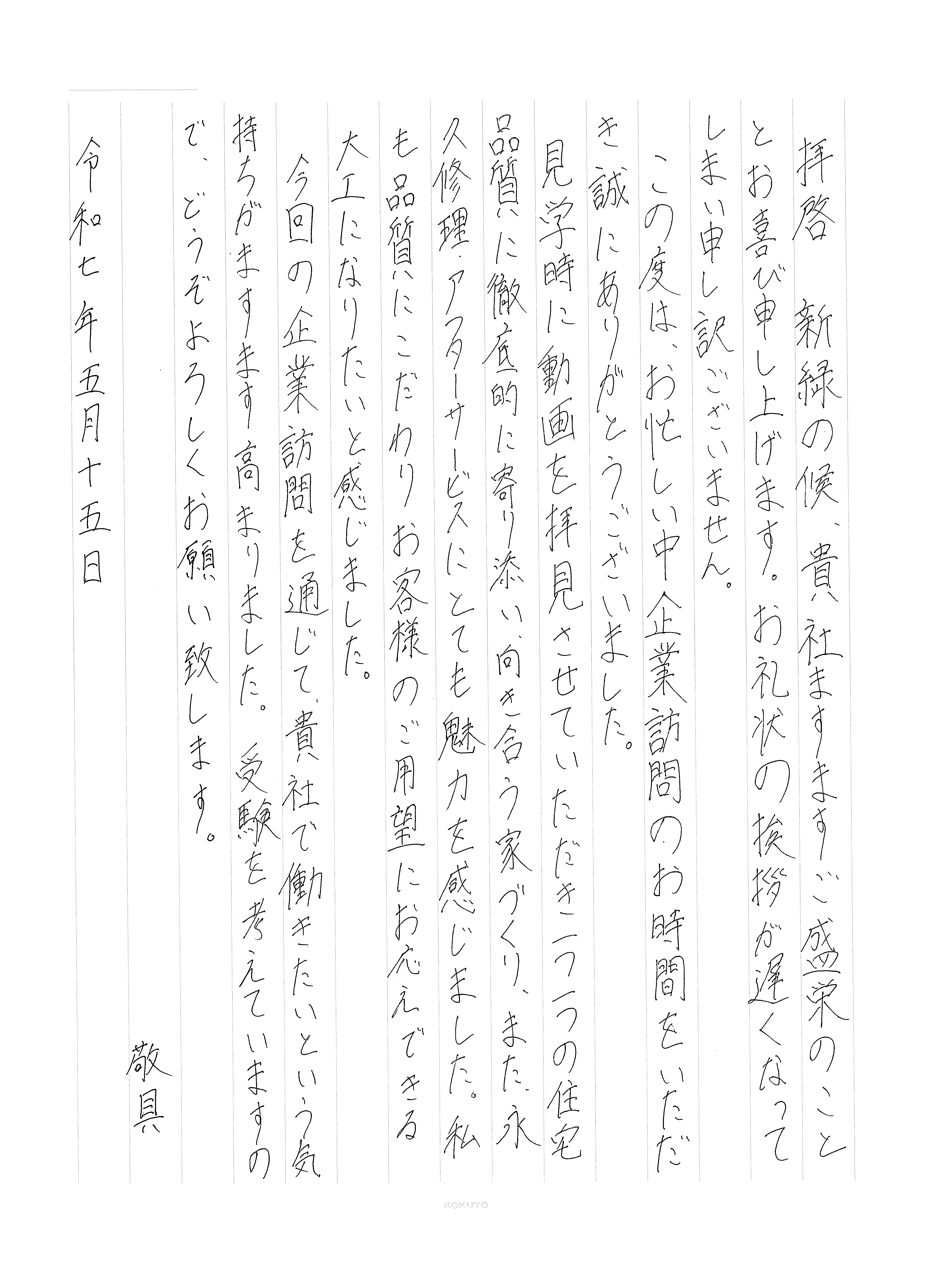 拝啓　新緑の候、貴社ますますご盛栄のこと
とお喜び申し上げます。お礼状の挨拶が遅くなって
しまい申し訳ございません。
この度は、お忙しい中企業訪問のお時間をいただ
き誠にありがとうございました。
見学時に動画を拝見させていただき一つ一つの住宅
品質に徹底的に寄り添い、向き合う家づくり、また、永
久修理・アフターサービスにとても魅力を感じました。私
も品質にこだわりお客様のご用望にお応えできる
大工になりたいと感じました。
今回の企業訪問を通じて、貴社で働きたいという気
持ちがますます高まりました。受験を考えていますの
で、どうぞよろしくお願い致します。
敬具
令和七年五月十五日
KOKUYO